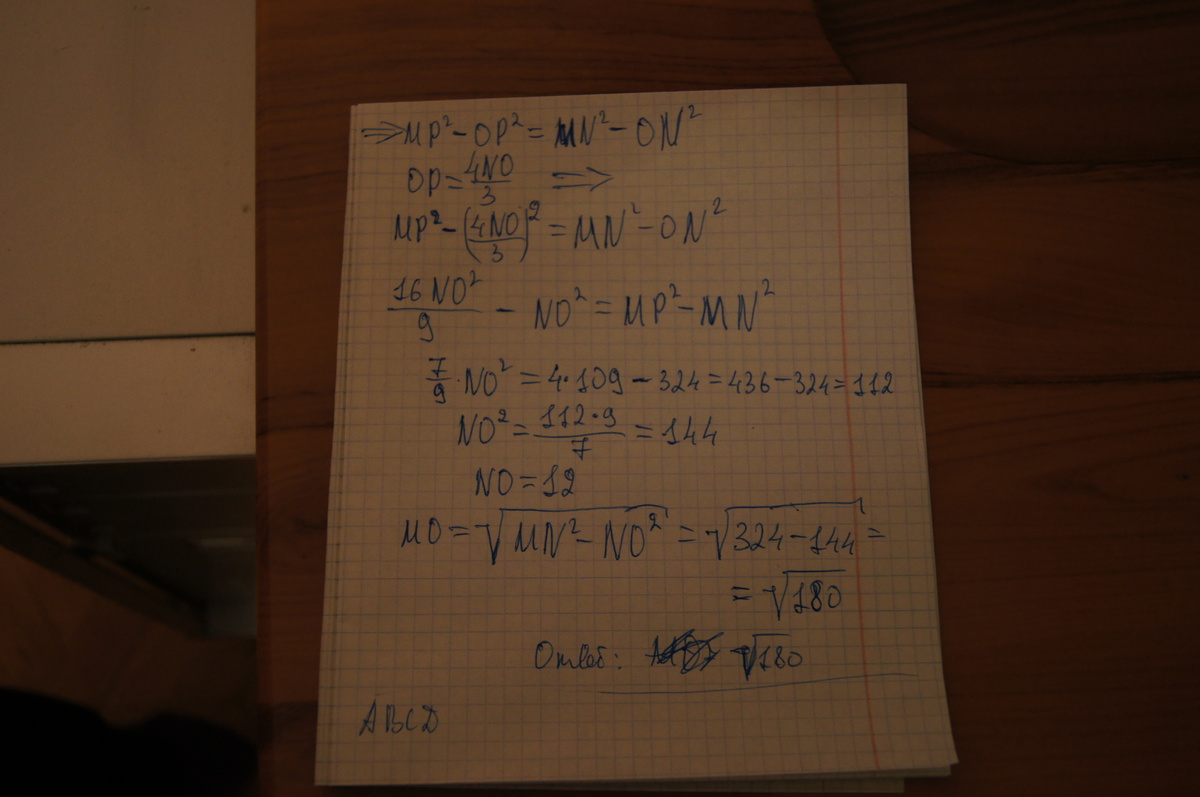 ⇒ MP² - OP² = MN² - ON²
OP = 4NO/3 ⇒
MP² - (4NO/3)² = MN² - ON²
16NO²/9 - NO² = MP² - MN²
7/9 · NO² = 4·109 - 324 = 436 - 324 = 112
NO² = 112·9/7 = 144
NO = 12
MO = √(MN² - NO²) = √(324 - 144) =
= √180
Ответ: √180
ABCD